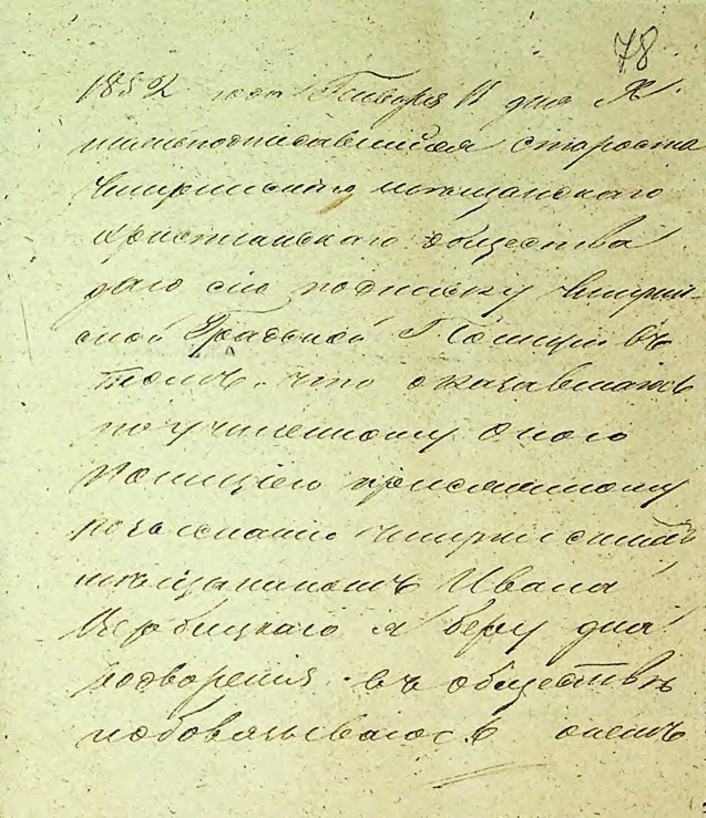 78
1852 года Генваря 11 дня Я
нижеподписавшийся староста
Чигиринского мещанского
христианского общества
даю сию подписку Чигирин-
ской Градской Полиции въ
томъ, что оказавшагось
по учиненному оною
Полициею присяжному
дознанию Чигиринскимъ
мещаниномъ Ивана
Вербицкаго я беру для
водворения въ общество
и обовязываюсь онемъ